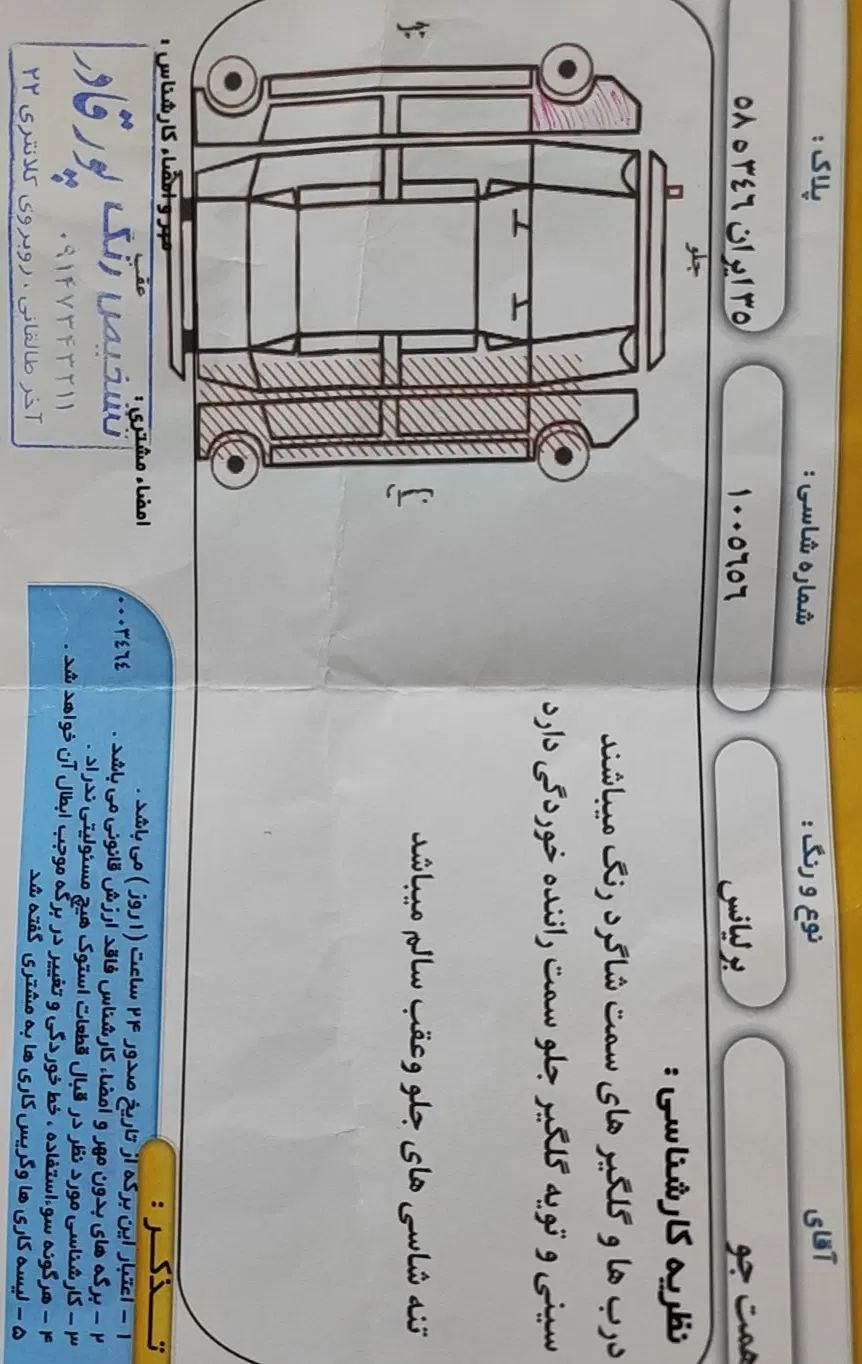 آقای
همت جو
نوع و رنگ :
برلیانس
شماره شاسی :
۱۰۰۵۶۵۶
پلاک :
۳۵ ایران ۳۴۶ ۵ ۵۸
نظریه کارشناسی :
درب ها و گلگیر های سمت شاگرد رنگ میباشند
سینی و تویه گلگیر جلو سمت راننده خوردگی دارد
تنه شاسی های جلو وعقب سالم میباشد
جلو
عقب
تـذکـر :
۱ - اعتبار این برگه از تاریخ صدور ۲۴ ساعت (۱ روز) می باشد .
۲ - برگه های بدون مهر و امضاء کارشناس فاقد ارزش قانونی می باشد .
۳ - کارشناسی مورد نظر در قبال قطعات استوک هیچ مسئولیتی ندراد .
۴ - هرگونه سوءاستفاده ، خط خوردگی و تغییر در برگه موجب ابطال آن خواهد شد .
۵ - لیسه کاری ها وگریس کاری ها به مشتری گفته شد
۰۰۰۳۴۶۴
امضاء مشتری :
مهر و امضاء کارشناس :
تشخیص رنگ پورقاور
۰۹۱۴۷۳۴۳۲۱۱
آخر طالقانی ، روبروی کلانتری ۲۲